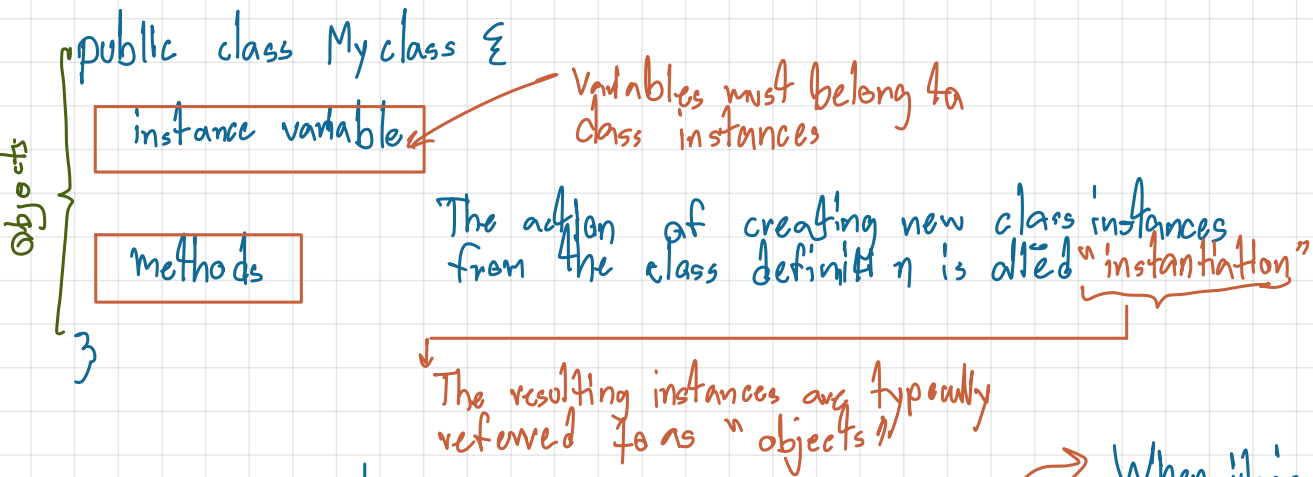 public class My class {
instance variable
variables must belong to
class instances
objects
methods
The action of creating new class instances
from the class definiti n is alled "instantiation"
}
The resulting instances are typically
referred to as "objects"
When it is